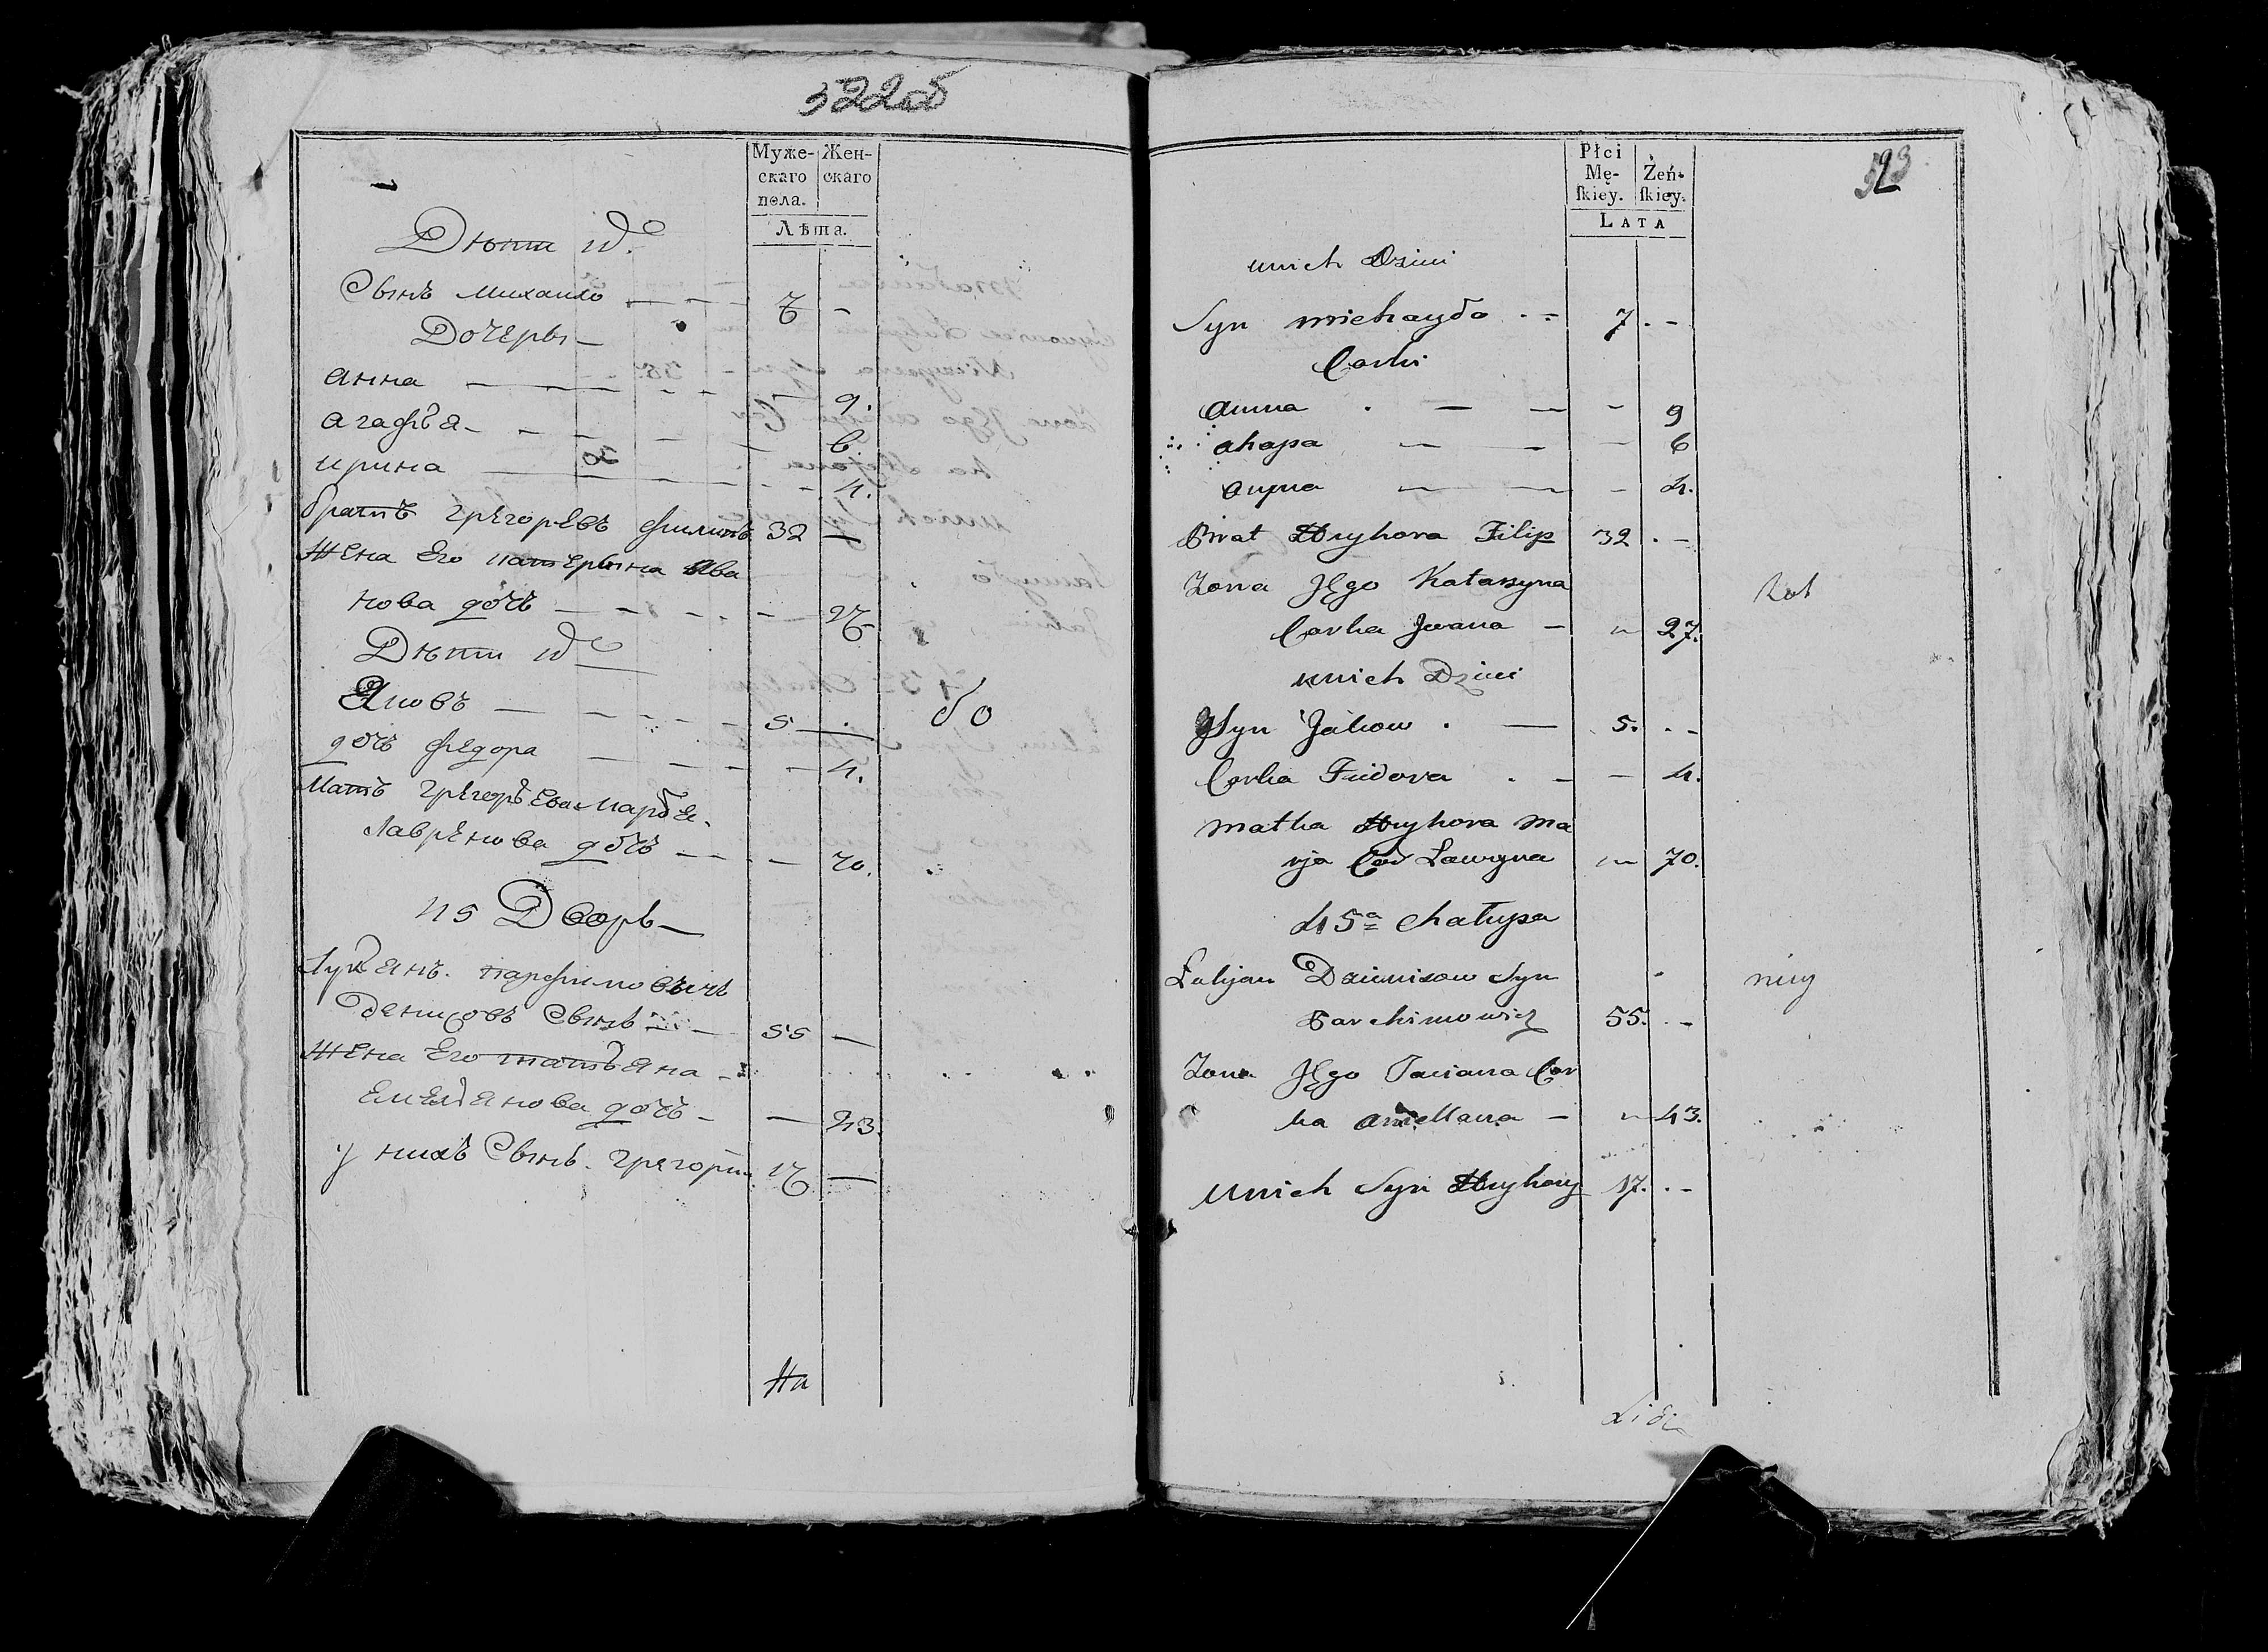 322об
Муже-
скаго
пола.
Жен-
скаго
Лѣта.
Дѣти их
Сынъ Михаило — — — 7 —
Дочеры —
Анна — — — — — 9.
Агафья — — — — — 6.
Ирина — — — — 4.
братъ Грегоревъ Филипъ 32 —
Жена Его катерына Ива
нова дочь — — — — — 27
Дѣти их
Яковъ — — — — 5 —
дочь Федора — — — — 4.
Мать Грегорьева Марья
Лавренова дочь — — — 70.
45 Дворъ —
Лукьянъ Парфимовичъ
Денисовъ Сынъ — 55 —
Жена Его татьяна —
Емельянова дочь — — 43.
у нихъ Сынъ Грегории 17 —
На
Płci
Mę-
ſkiey.
Żeń-
ſkiey.
LATA
323
unich Dzieci
Syn Michayło . — 7 . —
Corki
Anna . — — — 9
Ahapa — — — 6
Aryna — — — 4.
Brat Hryhora Filip 32 . —
Żona Jego Katarzyna
Corka Jwana — — 27.
unich Dzieci
Syn Jakow . — 5. . —
Corka Fiedora . — — 4.
Matka Hryhora Ma
rja Cor Lawryna — 70.
45a Chałupa
Łukjan Dzienisow Syn
Parchimowicz 55. . —
Żona Jego Taciana Cor
ka Amellana — — 43.
Unich Syn Hryhory 17. . —